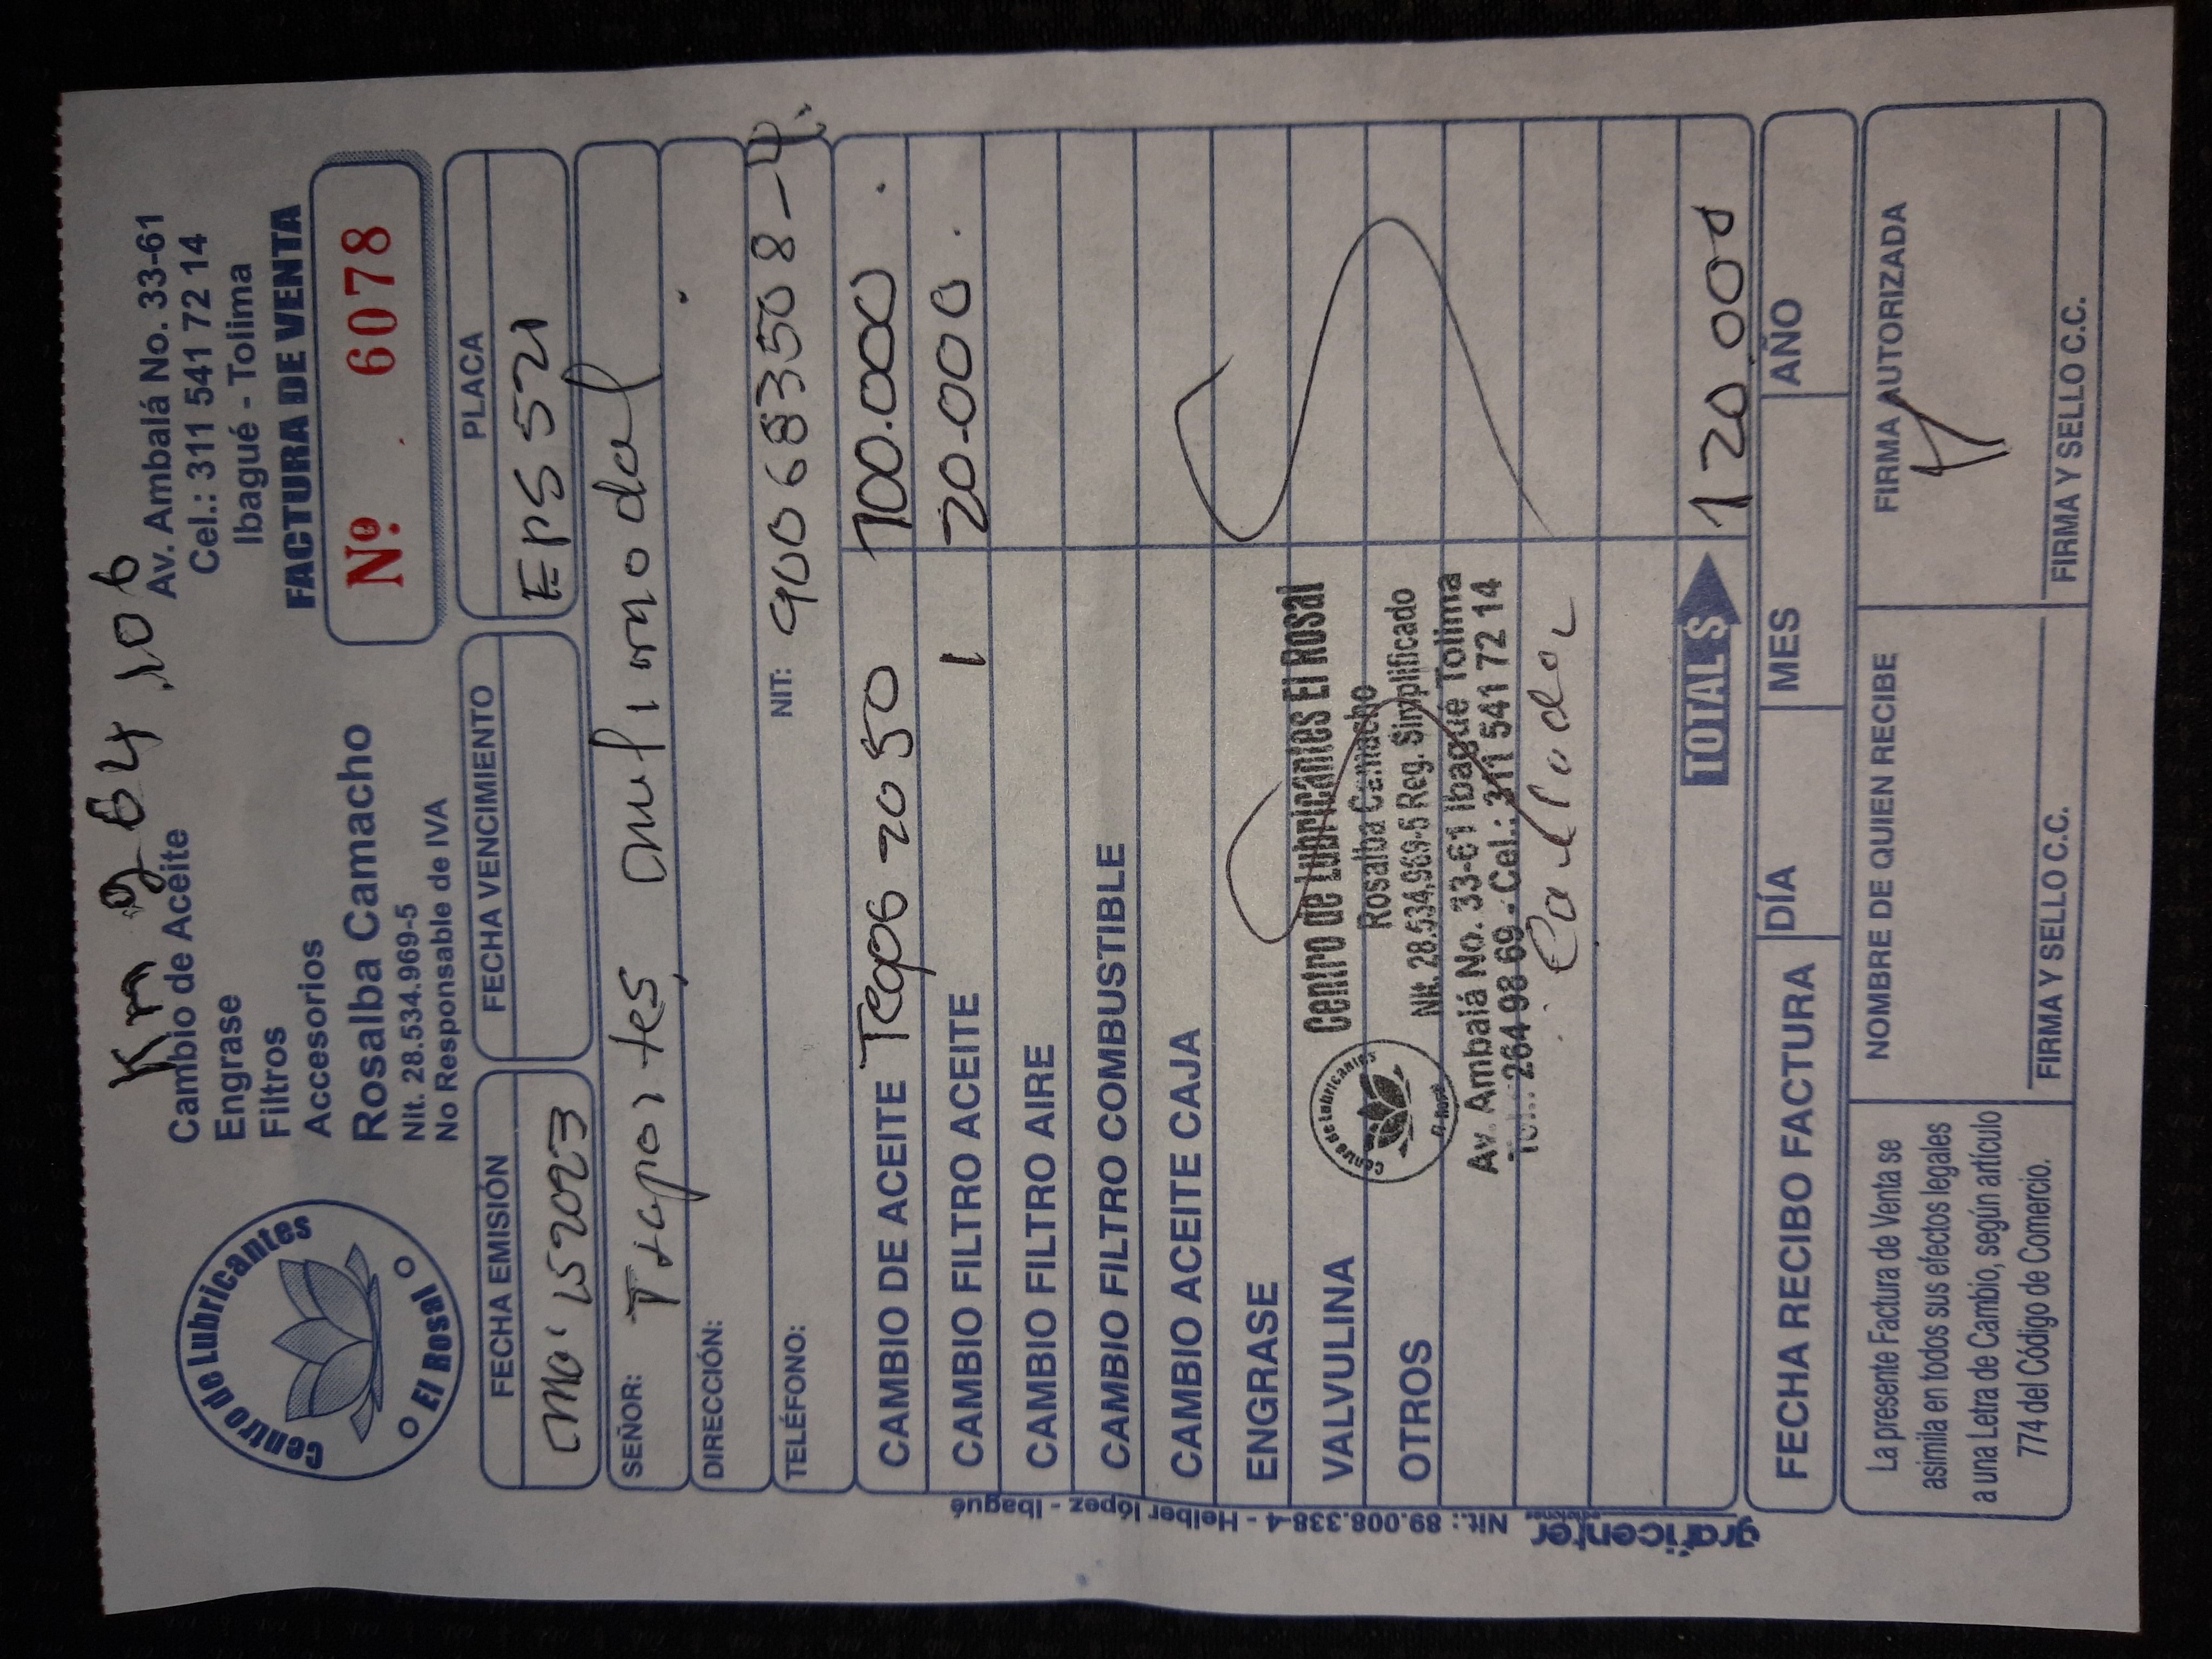 Km 264.106
Centro de Lubricantes
El Rosal
Cambio de Aceite
Engrase
Filtros
Accesorios
Rosalba Camacho
Nit. 28.534.969-5
No Responsable de IVA
Av. Ambalá No. 33-61
Cel.: 311 541 72 14
Ibagué - Tolima
FACTURA DE VENTA
Nº 6078
FECHA EMISIÓN FECHA VENCIMIENTO PLACA
15 2023 EPS 521
SEÑOR: multimodal
DIRECCIÓN:
TELÉFONO: NIT: 900683508-4
CAMBIO DE ACEITE 20 50 100.000
CAMBIO FILTRO ACEITE 1 20.000
CAMBIO FILTRO AIRE
CAMBIO FILTRO COMBUSTIBLE
CAMBIO ACEITE CAJA
ENGRASE
VALVULINA
OTROS
Centro de Lubricantes
El Rosal
Centro de Lubricantes El Rosal
Rosalba Camacho
Nit. 28.534.969-5 Reg. Simplificado
Av. Ambalá No. 33-61 Ibagué Tolima
Tel.: 264 98 69 - Cel.: 311 541 72 14
TOTAL $ 120.000
FECHA RECIBO FACTURA DÍA MES AÑO
La presente Factura de Venta se
asimila en todos sus efectos legales
a una Letra de Cambio, según artículo
774 del Código de Comercio.
NOMBRE DE QUIEN RECIBE
FIRMA Y SELLO C.C.
FIRMA AUTORIZADA
FIRMA Y SELLO C.C.
graficenter Nit.: 89.008.338-4 - Helber lópez - Ibagué